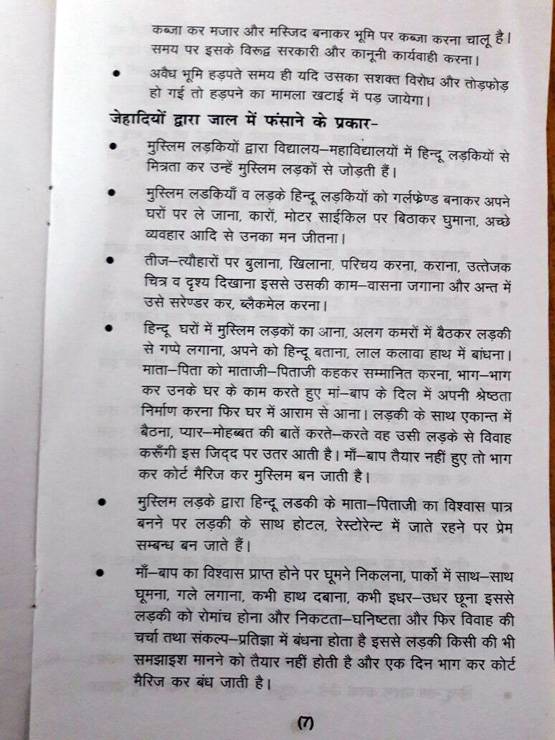 कब्जा कर मजार और मस्जिद बनाकर भूमि पर कब्जा करना चालू है।
समय पर इसके विरूद्व सरकारी और कानूनी कार्यवाही करना।
• अवैध भूमि हड़पते समय ही यदि उसका सशक्त विरोध और तोड़फोड़
हो गई तो हड़पने का मामला खटाई में पड़ जायेगा।
जेहादियों द्वारा जाल में फंसाने के प्रकार–
• मुस्लिम लड़कियों द्वारा विद्यालय–महाविद्यालयों में हिन्दू लड़कियों से
मित्रता कर उन्हें मुस्लिम लड़कों से जोड़ती हैं।
• मुस्लिम लडकियाँ व लड़के हिन्दू लड़कियों को गर्लफ्रेण्ड बनाकर अपने
घरों पर ले जाना, कारों, मोटर साईकिल पर बिठाकर घुमाना, अच्छे
व्यवहार आदि से उनका मन जीतना।
• तीज–त्यौहारों पर बुलाना, खिलाना, परिचय करना, कराना, उत्तेजक
चित्र व दृश्य दिखाना इससे उसकी काम–वासना जगाना और अन्त में
उसे सरेण्डर कर, ब्लैकमेल करना।
• हिन्दू घरों में मुस्लिम लड़कों का आना, अलग कमरों में बैठकर लड़की
से गप्पे लगाना, अपने को हिन्दू बताना, लाल कलावा हाथ में बांधना।
माता–पिता को माताजी–पिताजी कहकर सम्मानित करना, भाग–भाग
कर उनके घर के काम करते हुए मां–बाप के दिल में अपनी श्रेष्ठता
निर्माण करना फिर घर में आराम से आना। लड़की के साथ एकान्त में
बैठना, प्यार–मोहब्बत की बातें करते–करते वह उसी लड़के से विवाह
करूँगी इस जिद्द पर उतर आती है। माँ–बाप तैयार नहीं हुए तो भाग
कर कोर्ट मैरिज कर मुस्लिम बन जाती है।
• मुस्लिम लड़के द्वारा हिन्दू लडकी के माता–पिताजी का विश्वास पात्र
बनने पर लड़की के साथ होटल, रेस्टोरेन्ट में जाते रहने पर प्रेम
सम्बन्ध बन जाते हैं।
• माँ–बाप का विश्वास प्राप्त होने पर घूमने निकलना, पार्को में साथ–साथ
घूमना, गले लगाना, कभी हाथ दबाना, कभी इधर–उधर छूना इससे
लड़की को रोमांच होना और निकटता–घनिष्टता और फिर विवाह की
चर्चा तथा संकल्प–प्रतिज्ञा में बंधना होता है इससे लड़की किसी की भी
समझाइश मानने को तैयार नहीं होती है और एक दिन भाग कर कोर्ट
मैरिज कर बंध जाती है।
(7)